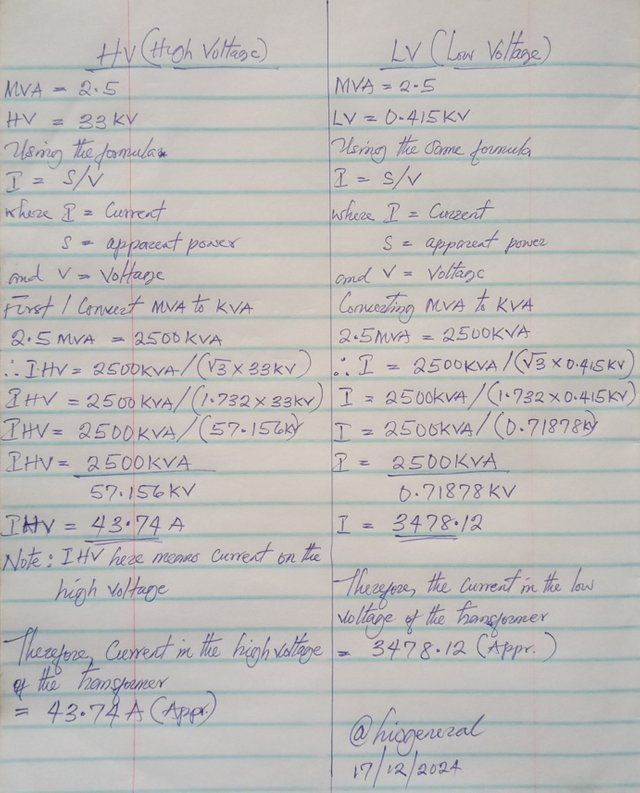 HV (High Voltage)
MVA = 2.5
HV = 33 KV
Using the formula
I = S/V
where I = Current
S = apparent power
and V = Voltage
First I Convert MVA to KVA
2.5 MVA = 2500 KVA
∴ IHV = 2500KVA/(√3 × 33KV)
IHV = 2500KVA/(1.732 × 33KV)
IHV = 2500KVA/(57.156KV
IHV = 2500KVA
57.156 KV
IHV = 43.74 A
Note: IHV here means current on the
high voltage
Therefore, Current in the high voltage
of the transformer
= 43.74 A (Appr.)
LV (Low Voltage)
MVA = 2.5
LV = 0.415KV
Using the same formula
I = S/V
where I = Current
S = apparent power
and V = Voltage
Converting MVA to KVA
2.5MVA = 2500KVA
∴ I = 2500KVA/(√3 × 0.415KV)
I = 2500KVA/(1.732 × 0.415KV)
I = 2500KVA/(0.71878KV
I = 2500KVA
0.71878 KV
I = 3478.12
Therefore, the current in the low
voltage of the transformer
= 3478.12 (Appr.)
@hisgeneral
17/12/2024